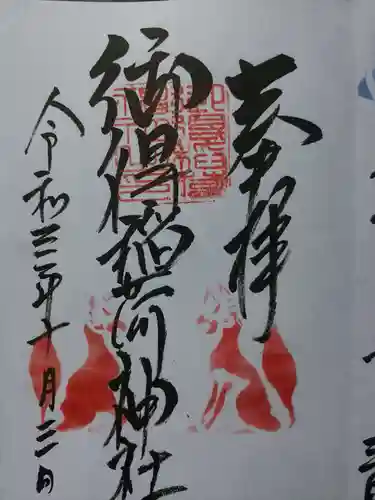 奉拝
御得稲荷神社
令和三年十月三日